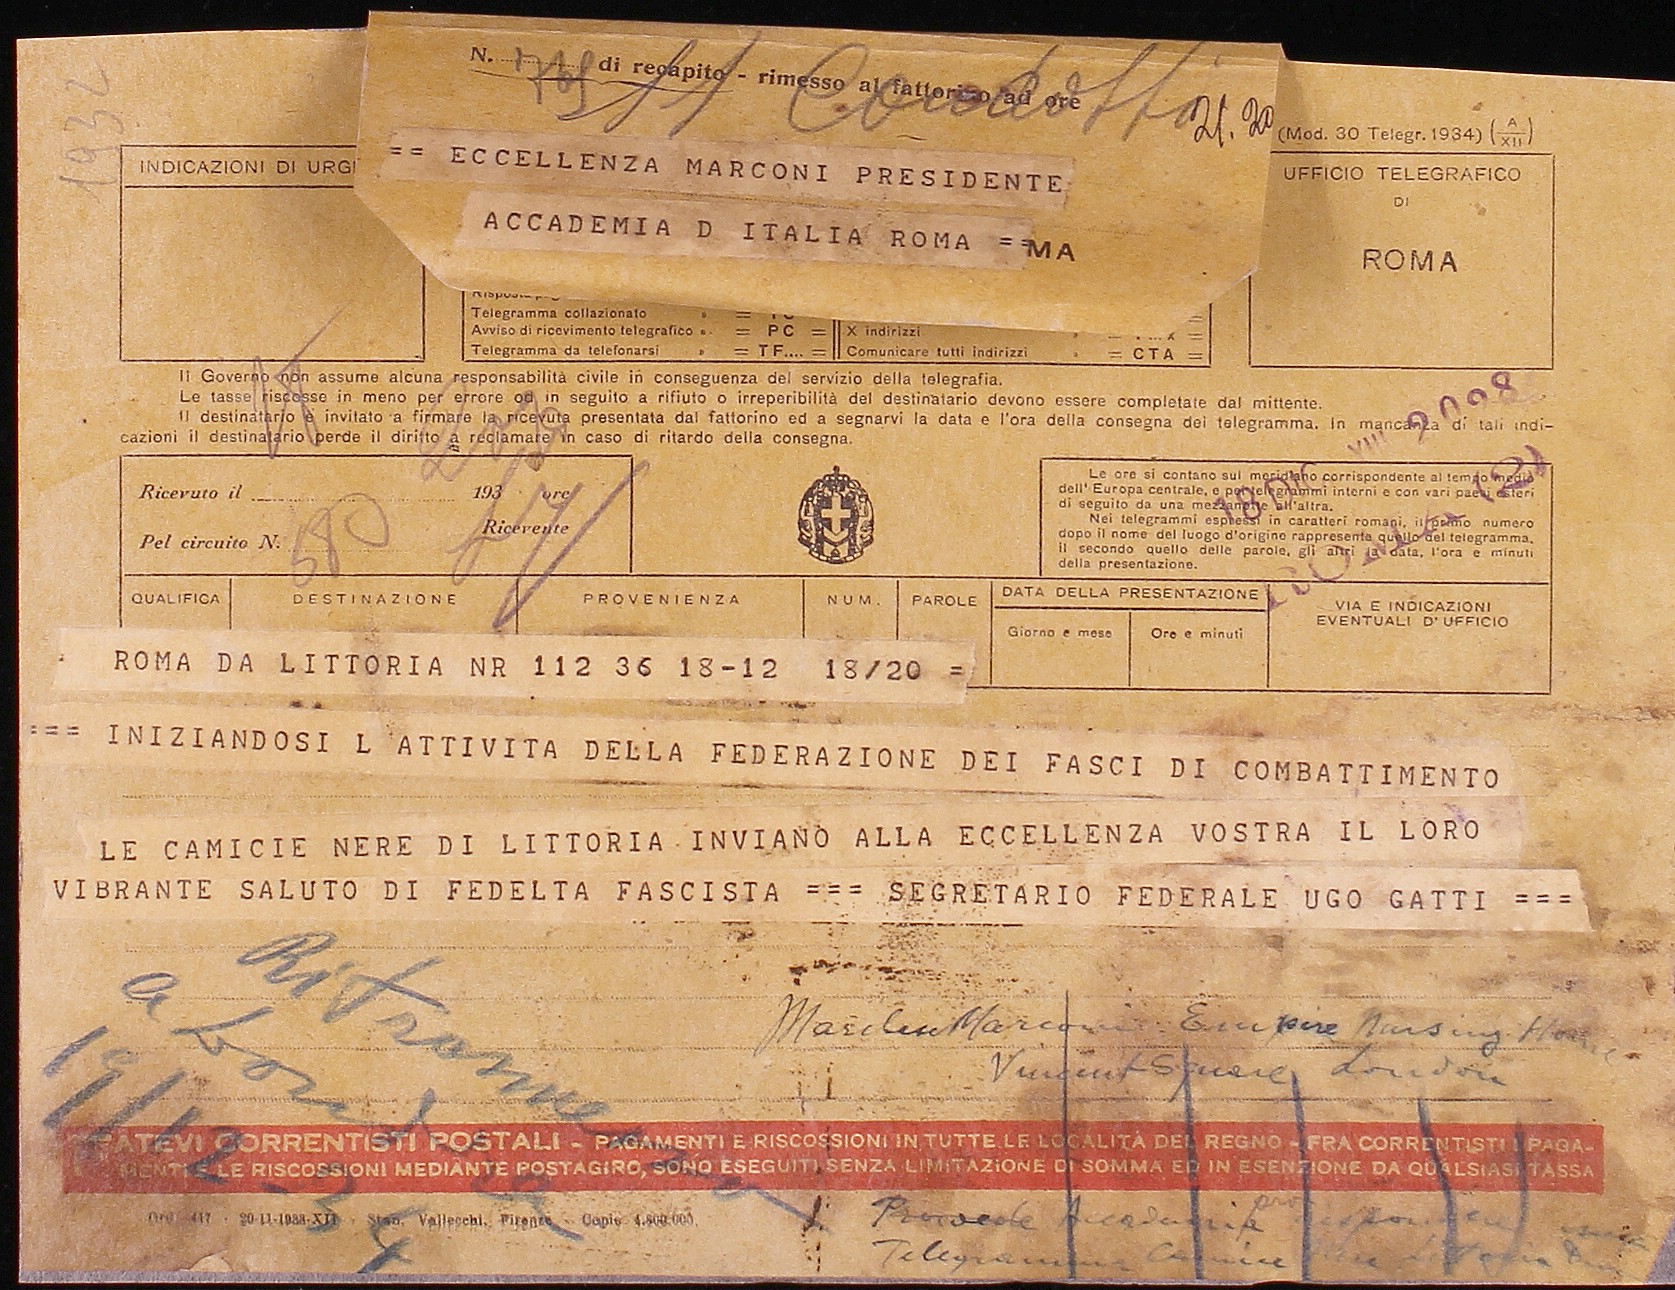 1932
N. 1705 di recapito - rimesso al fattorino ad ore 21.20
11 Condotti
(Mod. 30 Telegr. 1934) (A/XII)
== ECCELLENZA MARCONI PRESIDENTE
ACCADEMIA D ITALIA ROMA == MA
INDICAZIONI DI URG
UFFICIO TELEGRAFICO
DI
ROMA
Telegramma collazionato » =
Avviso di ricevimento telegrafico » = PC =
X indirizzi
Telegramma da telefonarsi » = TF.... =
Comunicare tutti indirizzi » = CTA =
Il Governo non assume alcuna responsabilità civile in conseguenza del servizio della telegrafia.
Le tasse riscosse in meno per errore od in seguito a rifiuto o irreperibilità del destinatario devono essere completate dal mittente.
Il destinatario è invitato a firmare la ricevuta presentata dal fattorino ed a segnarvi la data e l'ora della consegna del telegramma. In mancanza di tali indi-
cazioni il destinatario perde il diritto a reclamare in caso di ritardo della consegna.
Ricevuto il 193 ore
Pel circuito N. Ricevente
580
Le ore si contano sul meridiano corrispondente al tempo medio
dell'Europa centrale, e pei telegrammi interni e con vari paesi esteri
di seguito da una mezzanotte all'altra.
Nei telegrammi espressi in caratteri romani, il primo numero
dopo il nome del luogo d'origine rappresenta quello del telegramma,
il secondo quello delle parole, gli altri la data, l'ora e minuti
della presentazione.
18 DIC XIII 2098
ROMA (2)
QUALIFICA DESTINAZIONE PROVENIENZA NUM. PAROLE DATA DELLA PRESENTAZIONE
Giorno e mese Ore e minuti
VIA E INDICAZIONI
EVENTUALI D'UFFICIO
ROMA DA LITTORIA NR 112 36 18-12 18/20 =
=== INIZIANDOSI L ATTIVITA DELLA FEDERAZIONE DEI FASCI DI COMBATTIMENTO
LE CAMICIE NERE DI LITTORIA INVIANO ALLA ECCELLENZA VOSTRA IL LORO
VIBRANTE SALUTO DI FEDELTA FASCISTA === SEGRETARIO FEDERALE UGO GATTI ===
Ritrasmesso
a Londra
19/12-34
Marconi Empire Nursing Home
Vincent Square London
FATEVI CORRENTISTI POSTALI - PAGAMENTI E RISCOSSIONI IN TUTTE LE LOCALITÀ DEL REGNO - FRA CORRENTISTI I PAGA-
MENTI E LE RISCOSSIONI MEDIANTE POSTAGIRO, SONO ESEGUITI SENZA LIMITAZIONE DI SOMMA ED IN ESENZIONE DA QUALSIASI TASSA
Ord. 417 - 20-11-1933-XII - Stan. Vallecchi, Firenze - Copie 4.800.000.
Accademia
Telegramma Camicie Nere Littoria